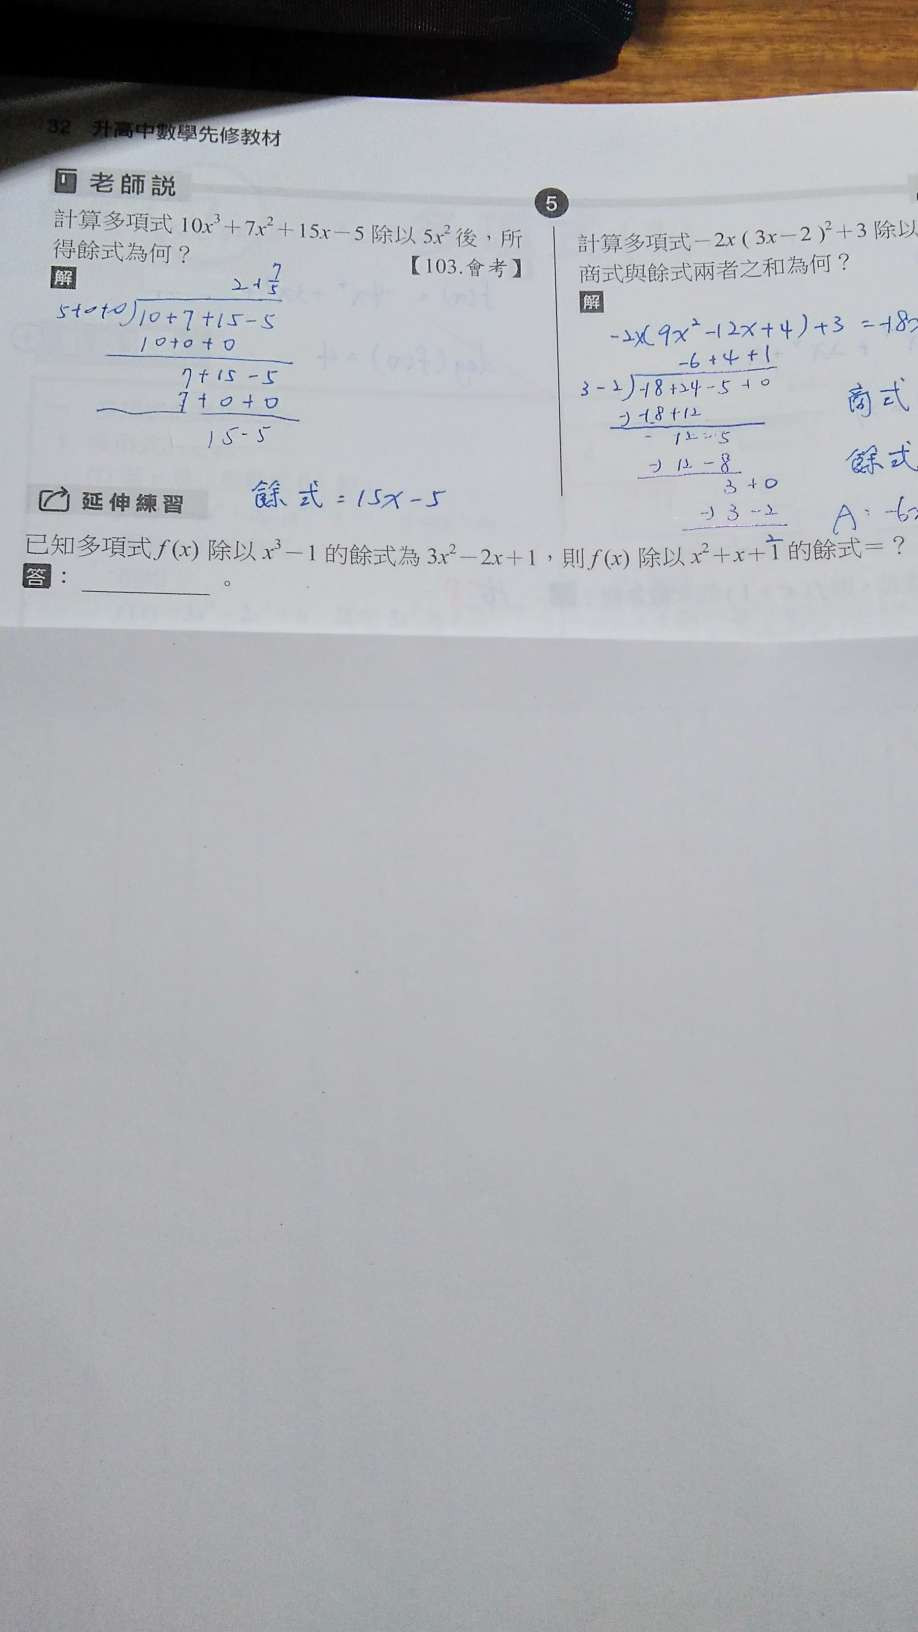 32 升高中數學先修教材
老師説
計算多項式 10x³+7x²+15x-5 除以 5x² 後，所
得餘式為何？
【103.會考】
解
2+7/5
5+0+0)10+7+15-5
10+0+0
7+15-5
7+0+0
15-5
餘式=15x-5
5
計算多項式-2x(3x-2)²+3 除以
商式與餘式兩者之和為何？
解
-2x(9x²-12x+4)+3 =-18x
-6+4+1
3-2)-18+24-5+0
-)-18+12
12-5
-)12-8
3+0
-)3-2
2
商式
餘式
A: -6x
延伸練習
已知多項式 f(x) 除以 x³-1 的餘式為 3x²-2x+1，則 f(x) 除以 x²+x+1 的餘式=？
答：＿＿＿＿＿。